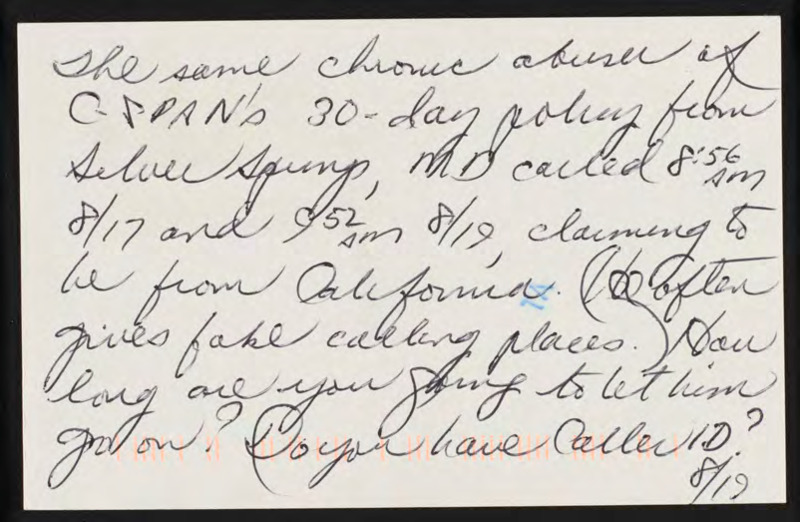 The same chronic abuser of
C-SPAN's 30-day policy from
Silver Spring, MD called 8:56 am
8/17 and 9:52 am 8/19, claiming to
be from California. (He often
gives fake calling places.) How
long are you going to let him
go on? (Do you have Caller I.D.?
8/19